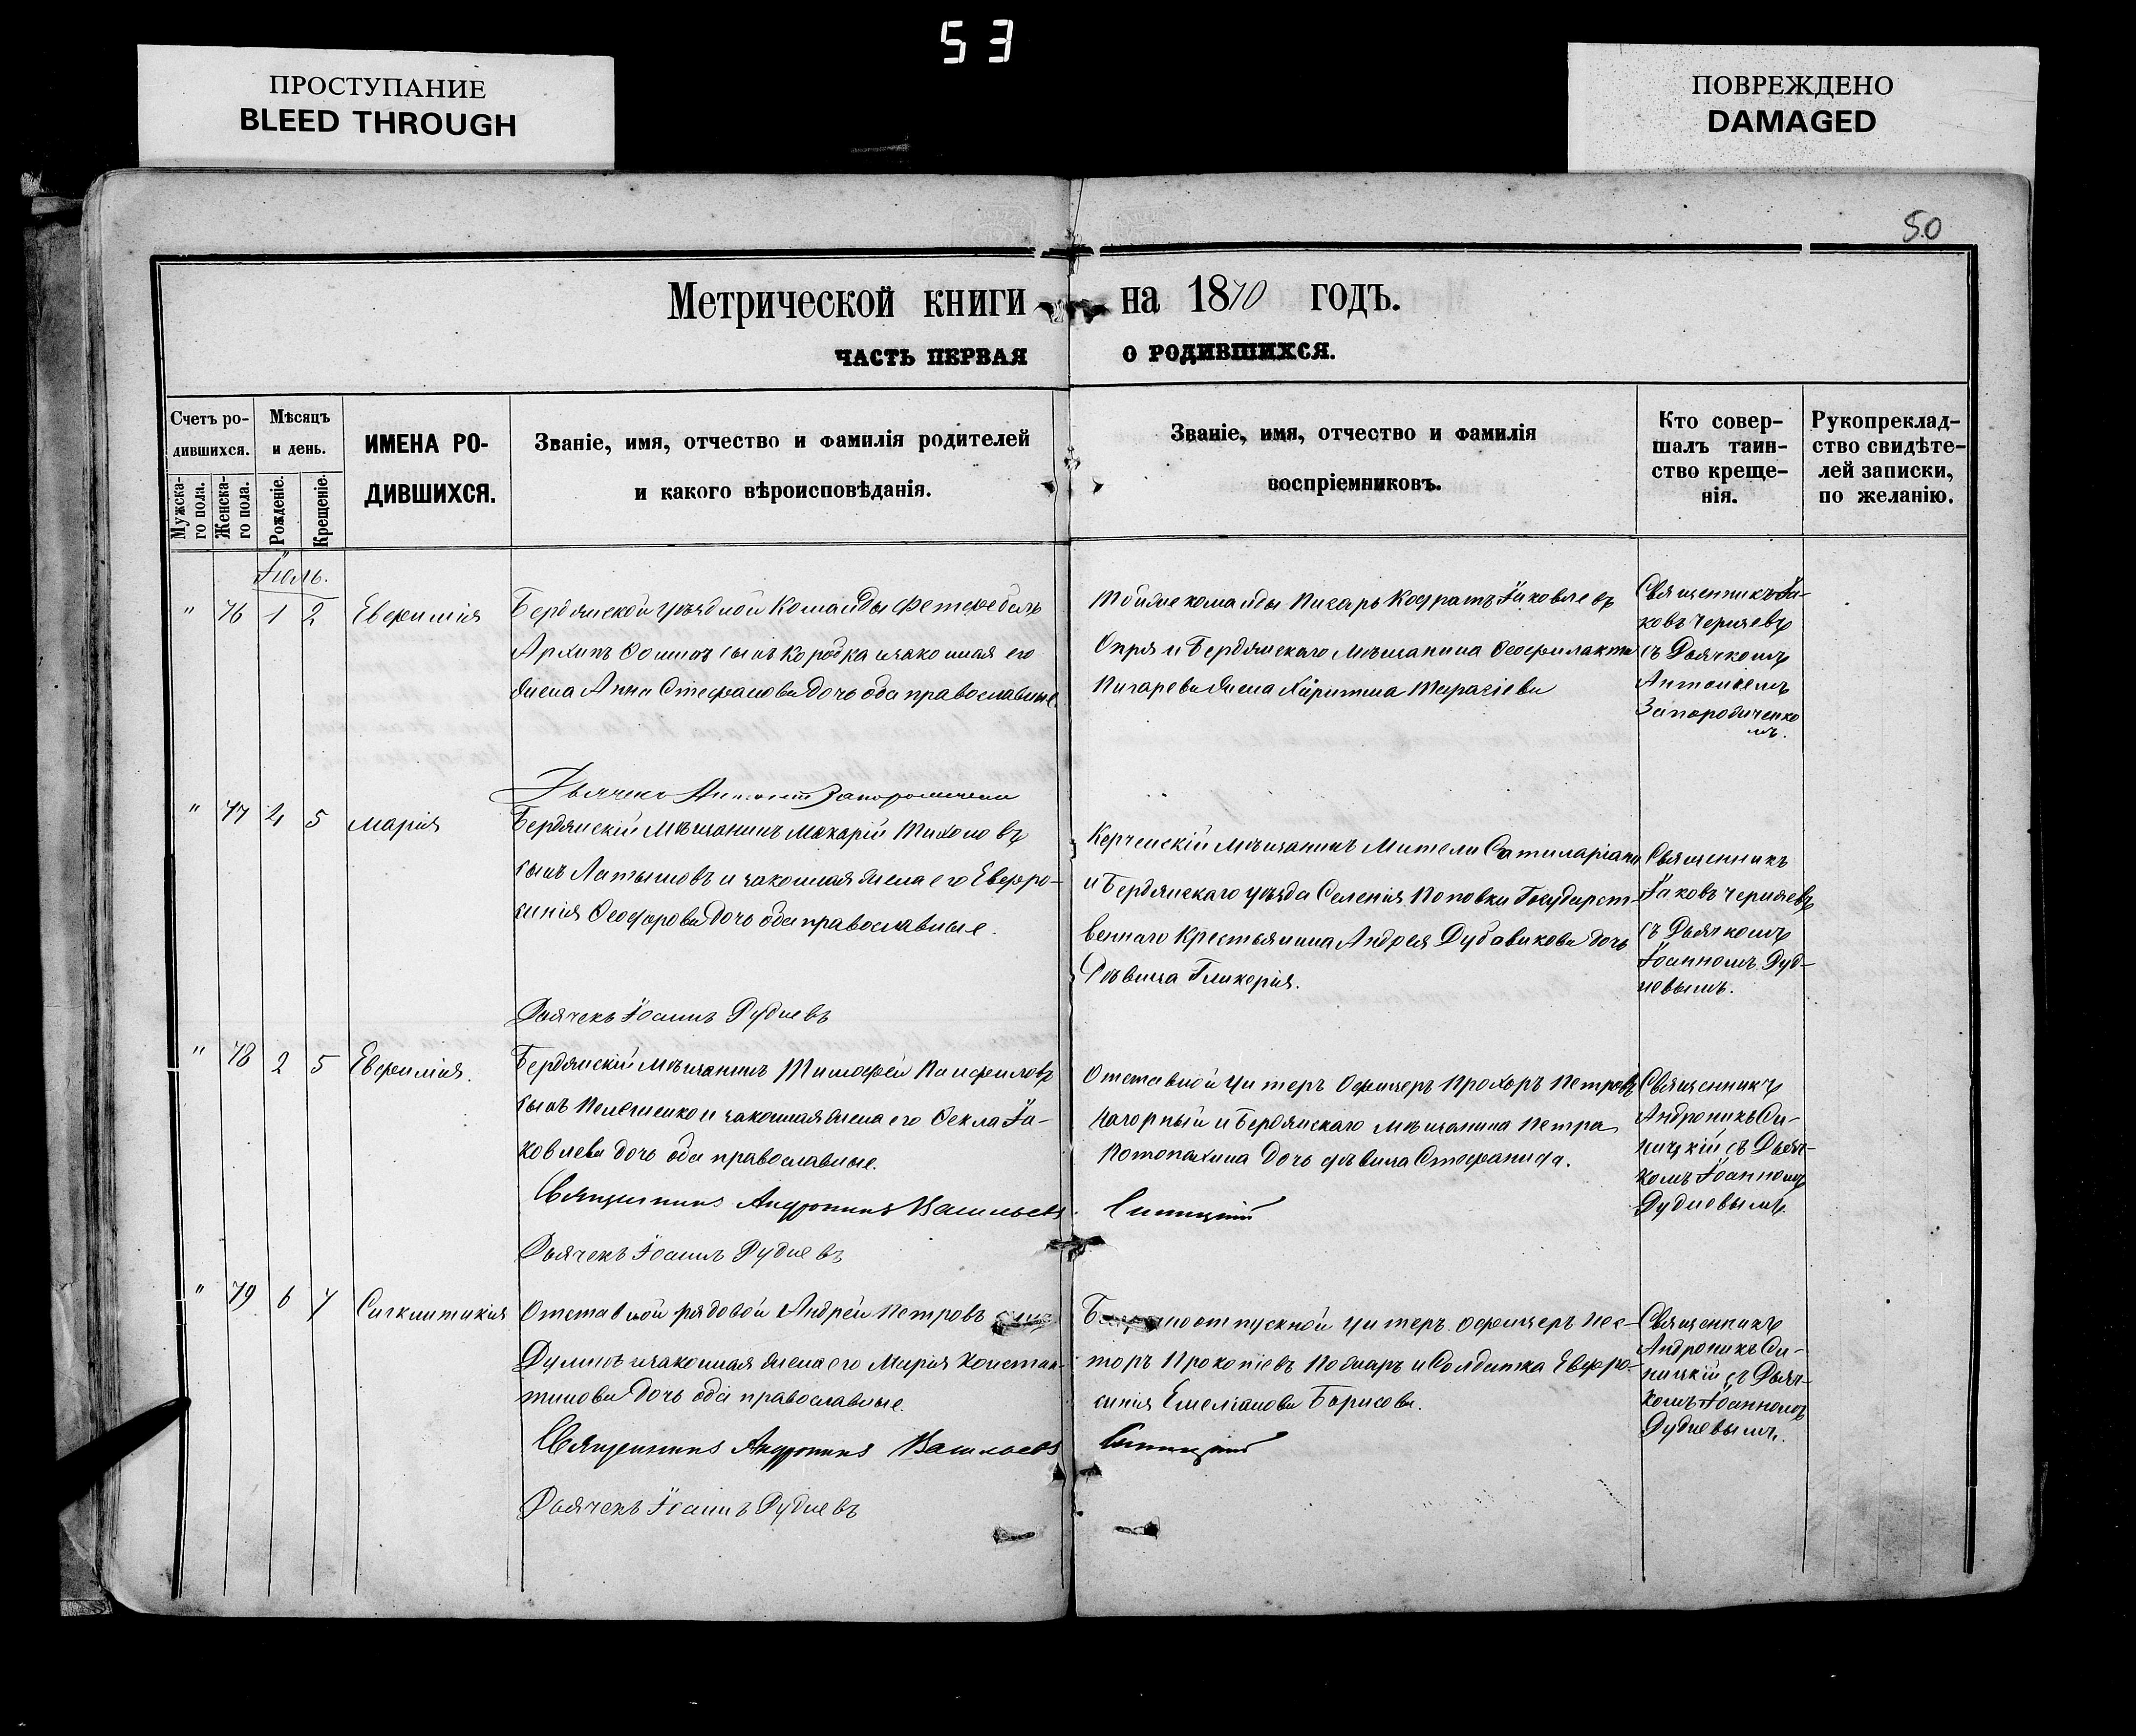 53
ПРОСТУПАНИЕ
BLEED THROUGH
ПОВРЕЖДЕНО
DAMAGED
50
Метрической книги на 1870 годъ.
ЧАСТЬ ПЕРВАЯ О РОДИВШИХСЯ.
Счетъ ро-
дившихся.
Мужска-
го пола.
Женска-
го пола.
Мѣсяцъ
и день.
Рожденіе.
Крещеніе.
ИМЕНА РО-
ДИВШИХСЯ.
Званіе, имя, отчество и фамилія родителей
и какого вѣроисповѣданія.
Званіе, имя, отчество и фамилія
воспріемниковъ.
Кто совер-
шалъ таин-
ство креще-
нія.
Рукоприклад-
ство свидѣте-
лей записки,
по желанію.
Іюль.
" 76 1 2 Евфимія
Бердянской уѣздной Команды
Архипъ Фоминъ сынъ Коробка и законная его
жена Анна Стефанова дочь оба православные.
Тойже команды Писарь Кодратъ Іаковлевъ
и Бердянскаго мѣщанина Феофилакта
Писарева жена Харитина Тарасіева
Священникъ Іа-
ковъ Черняевъ
съ Дьячкомъ
Антоніемъ
Запорожченко
мъ.
Дьячекъ Антоній Запорожченко
" 77 2 5 Марія
Бердянскій мѣщанинъ Макарій Тихоновъ
сынъ Латышовъ и законная жена его Евфро-
синія Феодорова дочь оба православные.
Керченскій мѣщанинъ
и Бердянскаго уѣзда Селенія Поповки Государст-
веннаго Крестьянина Андрея Дубовикова дочь
Дѣвица Гликерія.
Священникъ
Іаковъ Черняевъ
съ Дьячкомъ
Іоанномъ Дуд-
невымъ.
Дьячекъ Іоаннъ Дудневъ
" 78 2 5 Евфимія.
Бердянскій мѣщанинъ Тимофей Панфиловъ
сынъ и законная жена его Фекла Іа-
ковлева дочь оба православные.
Отставной Унтеръ Офицеръ Прохоръ Петровъ
Нагорный и Бердянскаго мѣщанина Петра
Потопахина дочь дѣвица Стефанида.
Священникъ
Андроникъ Си-
ницкій съ Дьяч-
комъ Іоанномъ
Дудневымъ.
Священникъ Андроникъ Васильевъ Синицкій
Дьячекъ Іоаннъ Дудневъ
" 79 6 7 Сигклитикія
Отставной рядовой Андрей Петровъ сынъ
Думинъ и законная жена его Марія Констан-
тинова дочь оба православные.
отпускной Унтеръ Офицеръ Нес-
торъ Прокопіевъ и Солдатка Евфро-
синія Емеліанова Борисова.
Священникъ
Андроникъ Си-
ницкій съ Дьяч-
комъ Іоанномъ
Дудневымъ.
Священникъ Андроникъ Васильевъ Синицкій
Дьячекъ Іоаннъ Дудневъ